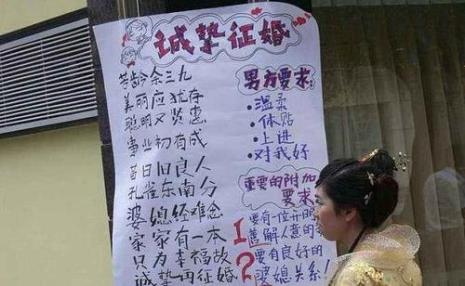 诚挚征婚
芳龄余三九
美丽应犹存
聪明又贤惠
事业初有成
昔日旧良人
孔雀东南分
婆媳经难念
家家有一本
只为幸福故
诚挚再征婚
男方要求:
·温柔
·体贴
·上进
·对我好
重要的附加
要求:
1 要有一位开明
善解人意的
2 要有良好的
婆媳关系!